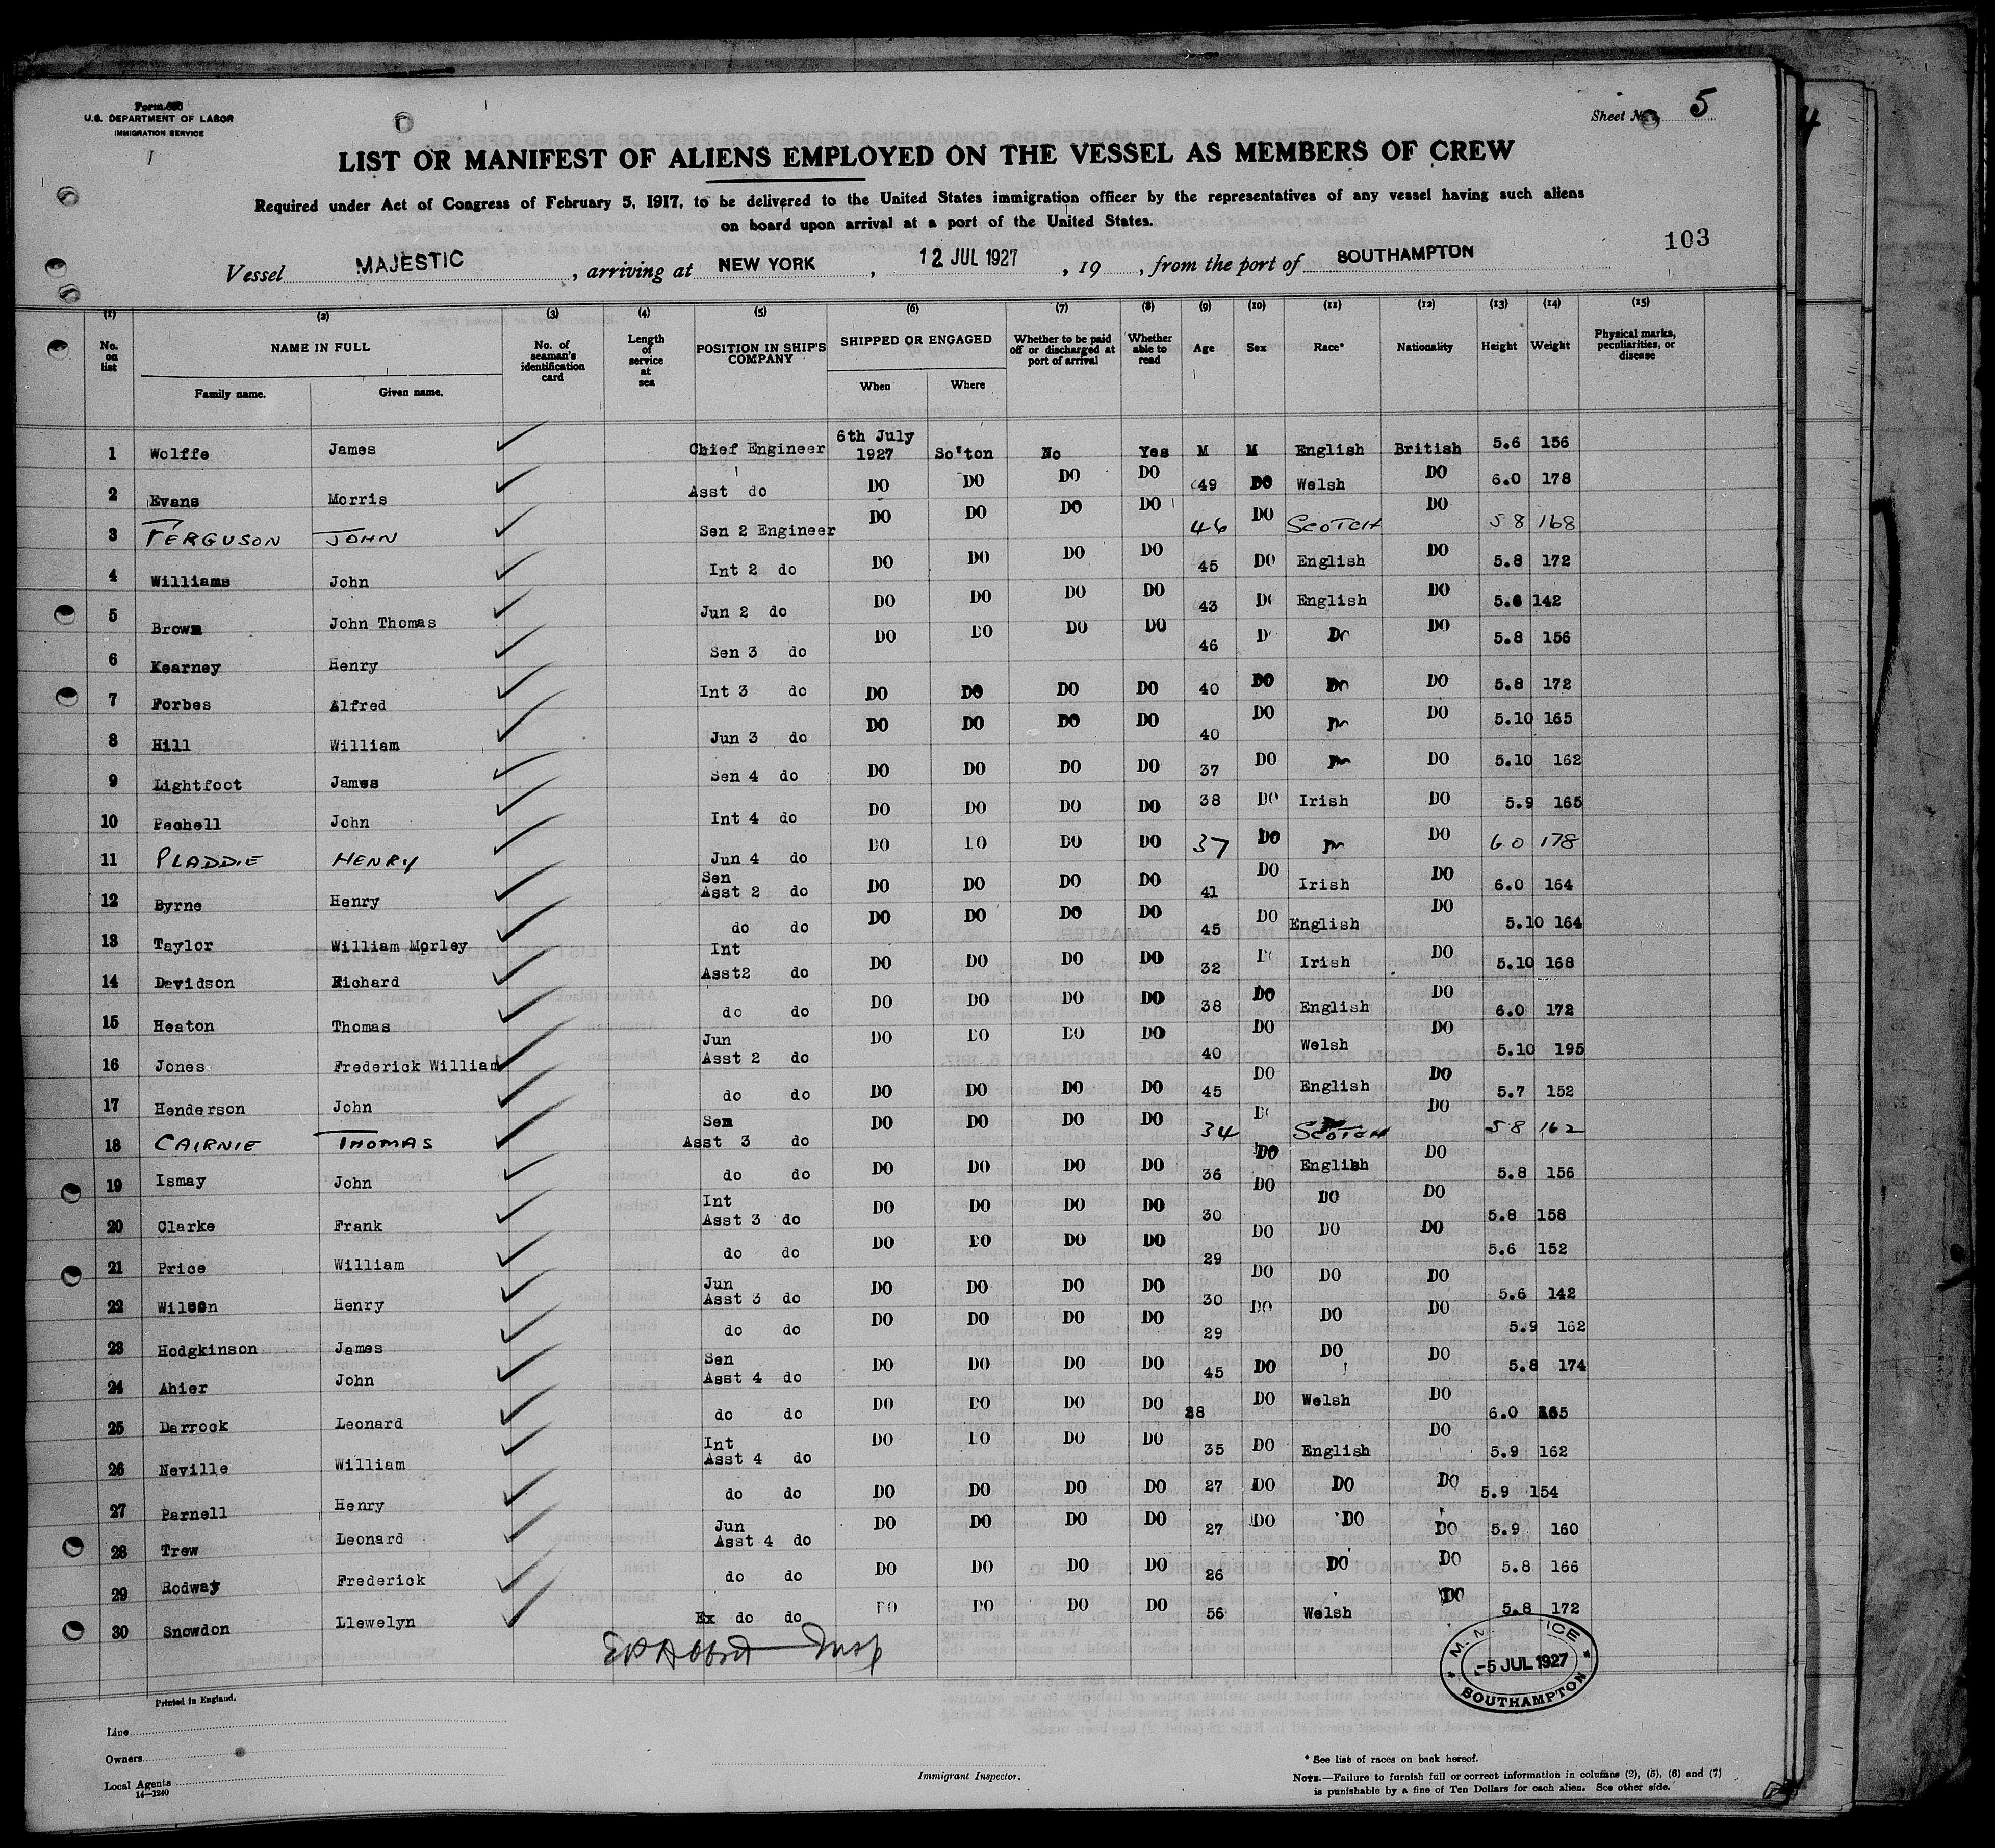 Form 680
U.S. DEPARTMENT OF LABOR
IMMIGRATION SERVICE
Sheet No. 5
LIST OR MANIFEST OF ALIENS EMPLOYED ON THE VESSEL AS MEMBERS OF CREW
Required under Act of Congress of February 5, 1917, to be delivered to the United States immigration officer by the representatives of any vessel having such aliens
on board upon arrival at a port of the United States.
103
Vessel MAJESTIC, arriving at NEW YORK, 12 JUL 1927, 19, from the port of SOUTHAMPTON
(1) (2) (3) (4) (5) (6) (7) (8) (9) (10) (11) (12) (13) (14) (15)
No. on list NAME IN FULL Family name. Given name. No. of seaman's identification card Length of service at sea POSITION IN SHIP'S COMPANY SHIPPED OR ENGAGED When Where Whether to be paid off or discharged at port of arrival Whether able to read Age Sex Race* Nationality Height Weight Physical marks, peculiarities, or disease
1 Wolffe James Chief Engineer 6th July 1927 So'ton No Yes M M English British 5.6 156
2 Evans Morris Asst do DO DO DO DO 49 DO Welsh DO 6.0 178
3 FERGUSON JOHN Sen 2 Engineer DO DO DO DO 46 DO SCOTCH DO 5 8 168
4 Williams John Int 2 do DO DO DO DO 45 DO English DO 5.8 172
5 Brown John Thomas Jun 2 do DO DO DO DO 43 DO English DO 5.6 142
6 Kearney Henry Sen 3 do DO DO DO DO 46 D Do DO 5.8 156
7 Forbes Alfred Int 3 do DO DO DO DO 40 DO Do DO 5.8 172
8 Hill William Jun 3 do DO DO DO DO 40 DO Do DO 5.10 165
9 Lightfoot James Sen 4 do DO DO DO DO 37 DO Do DO 5.10 162
10 Pechell John Int 4 do DO DO DO DO 38 DO Irish DO 5.9 165
11 PLADDIE HENRY Jun 4 do DO DO DO DO 37 DO Do DO 6 0 178
12 Byrne Henry Sen Asst 2 do DO DO DO DO 41 DO Irish DO 6.0 164
13 Taylor William Morley do do DO DO DO DO 45 DO English DO 5.10 164
14 Davidson Richard Int Asst2 do DO DO DO DO 32 DO Irish DO 5.10 168
15 Heaton Thomas do do DO DO DO DO 38 DO English DO 6.0 172
16 Jones Frederick William Jun Asst 2 do DO DO DO DO 40 DO Welsh DO 5.10 195
17 Henderson John do do DO DO DO DO 45 DO English DO 5.7 152
18 CAIRNIE THOMAS Sen Asst 3 do DO DO DO DO 34 DO SCOTCH DO 5 8 162
19 Ismay John do do DO DO DO DO 36 DO English DO 5.8 156
20 Clarke Frank Int Asst 3 do DO DO DO DO 30 DO DO DO 5.8 158
21 Price William do do DO DO DO DO 29 DO DO DO 5.6 152
22 Wilson Henry Jun Asst 3 do DO DO DO DO 30 DO DO DO 5.6 142
23 Hodgkinson James do do DO DO DO DO 29 DO DO DO 5.9 162
24 Ahier John Sen Asst 4 do DO DO DO DO 45 DO DO DO 5.8 174
25 Darrock Leonard do do DO DO DO DO 28 DO Welsh DO 6.0 165
26 Neville William Int Asst 4 do DO DO DO DO 35 DO English DO 5.9 162
27 Parnell Henry do do DO DO DO DO 27 DO DO DO 5.9 154
28 Trew Leonard Jun Asst 4 do DO DO DO DO 27 DO DO DO 5.9 160
29 Rodway Frederick do do DO DO DO DO 26 DO DO 5.8 166
30 Snowdon Llewelyn Ex do do DO DO DO DO 56 Welsh DO 5.8 172
Insp
-5 JUL 1927
SOUTHAMPTON
Printed in England.
Line
Owners
Local Agents
14—1240
Immigrant Inspector.
* See list of races on back hereof.
NOTE.—Failure to furnish full or correct information in columns (2), (5), (6) and (7)
is punishable by a fine of Ten Dollars for each alien. See other side.
4